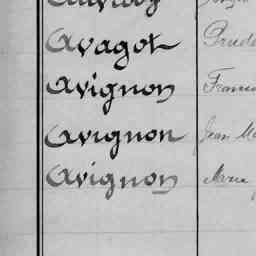 Avagot Prude
Avignon Franc
Avignon Jean Ma
Avignon Marie